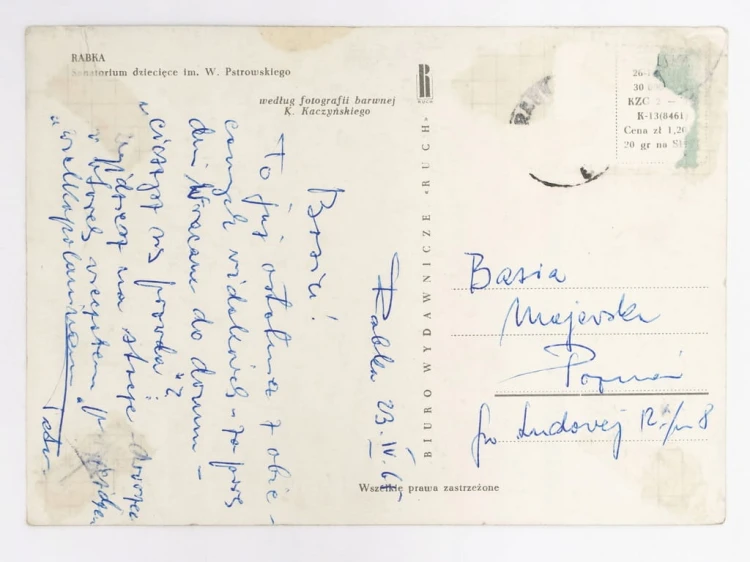 RABKA
Sanatorium dziecięce im. W. Pstrowskiego
według fotografii barwnej
K. Kaczyńskiego
R
RUCH
BIURO WYDAWNICZE «RUCH»
Wszelkie prawa zastrzeżone
26-
30
KZC
K-13(8461)
Cena zł 1,20
20 gr na S
Rabka 23.IV.6
Basiu!
To już ostatnia z obie-
canych widokówek - za parę
dni wracam do domu -
cieszysz się prawda?
wyjdziesz na stację
Tata
Basia
Majewska
Poznań
Ludowej 12 m 8